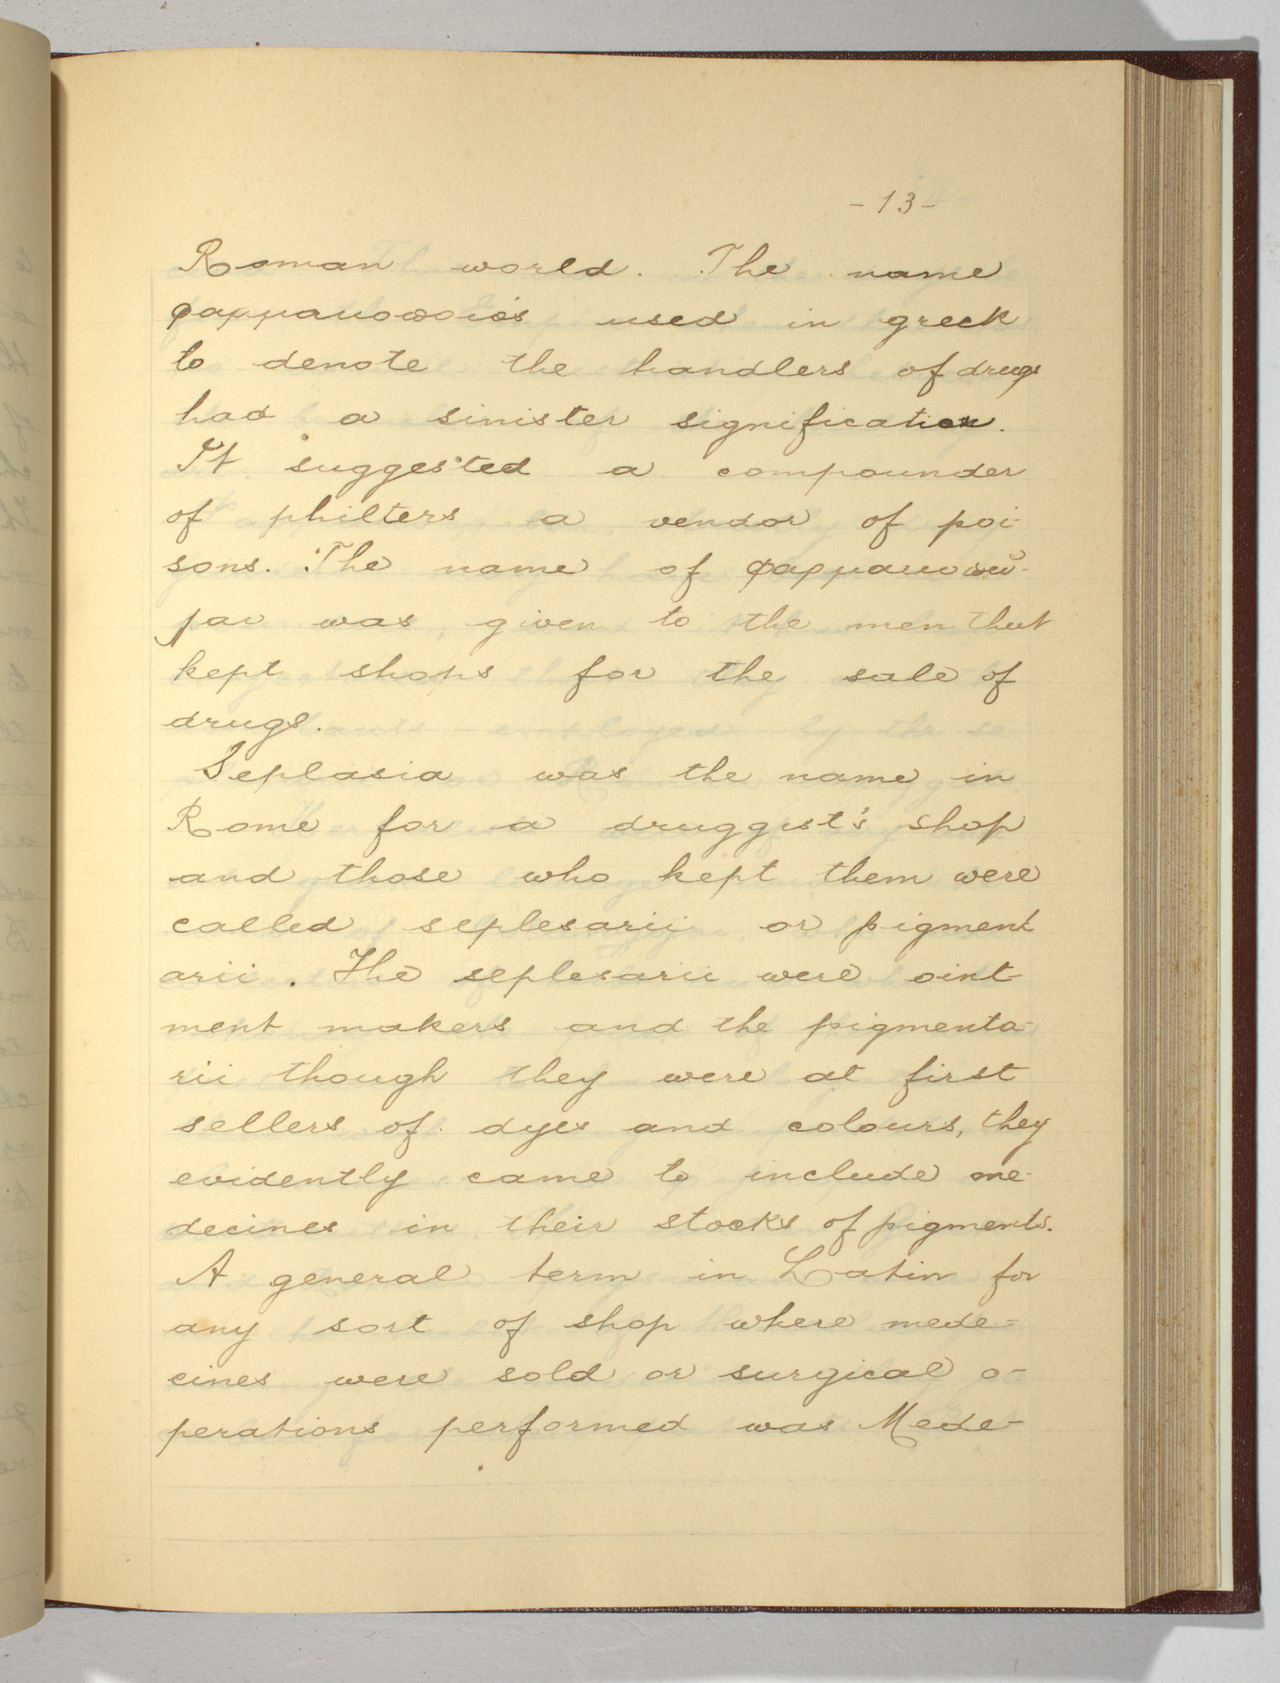 -13-
Roman world. The name
φαρμακοποιός used in greek
to denote the handlers of drugs
had a sinister signification.
It suggested a compounder
of philters a vendor of poi-
sons. The name of
was given to the men that
kept shops for the sale of
drugs.
Seplasia was the name in
Rome for a druggist's shop
and those who kept them were
called seplesarii or pigment
arii. The seplesarii were oint-
ment makers and the pigmenta-
rii though they were at first
sellers of dyes and colours, they
evidently came to include me-
decines in their stocks of pigments.
A general term in Latin for
any sort of shop where mede=
cines were sold or surgical o-
perations performed was Mede-